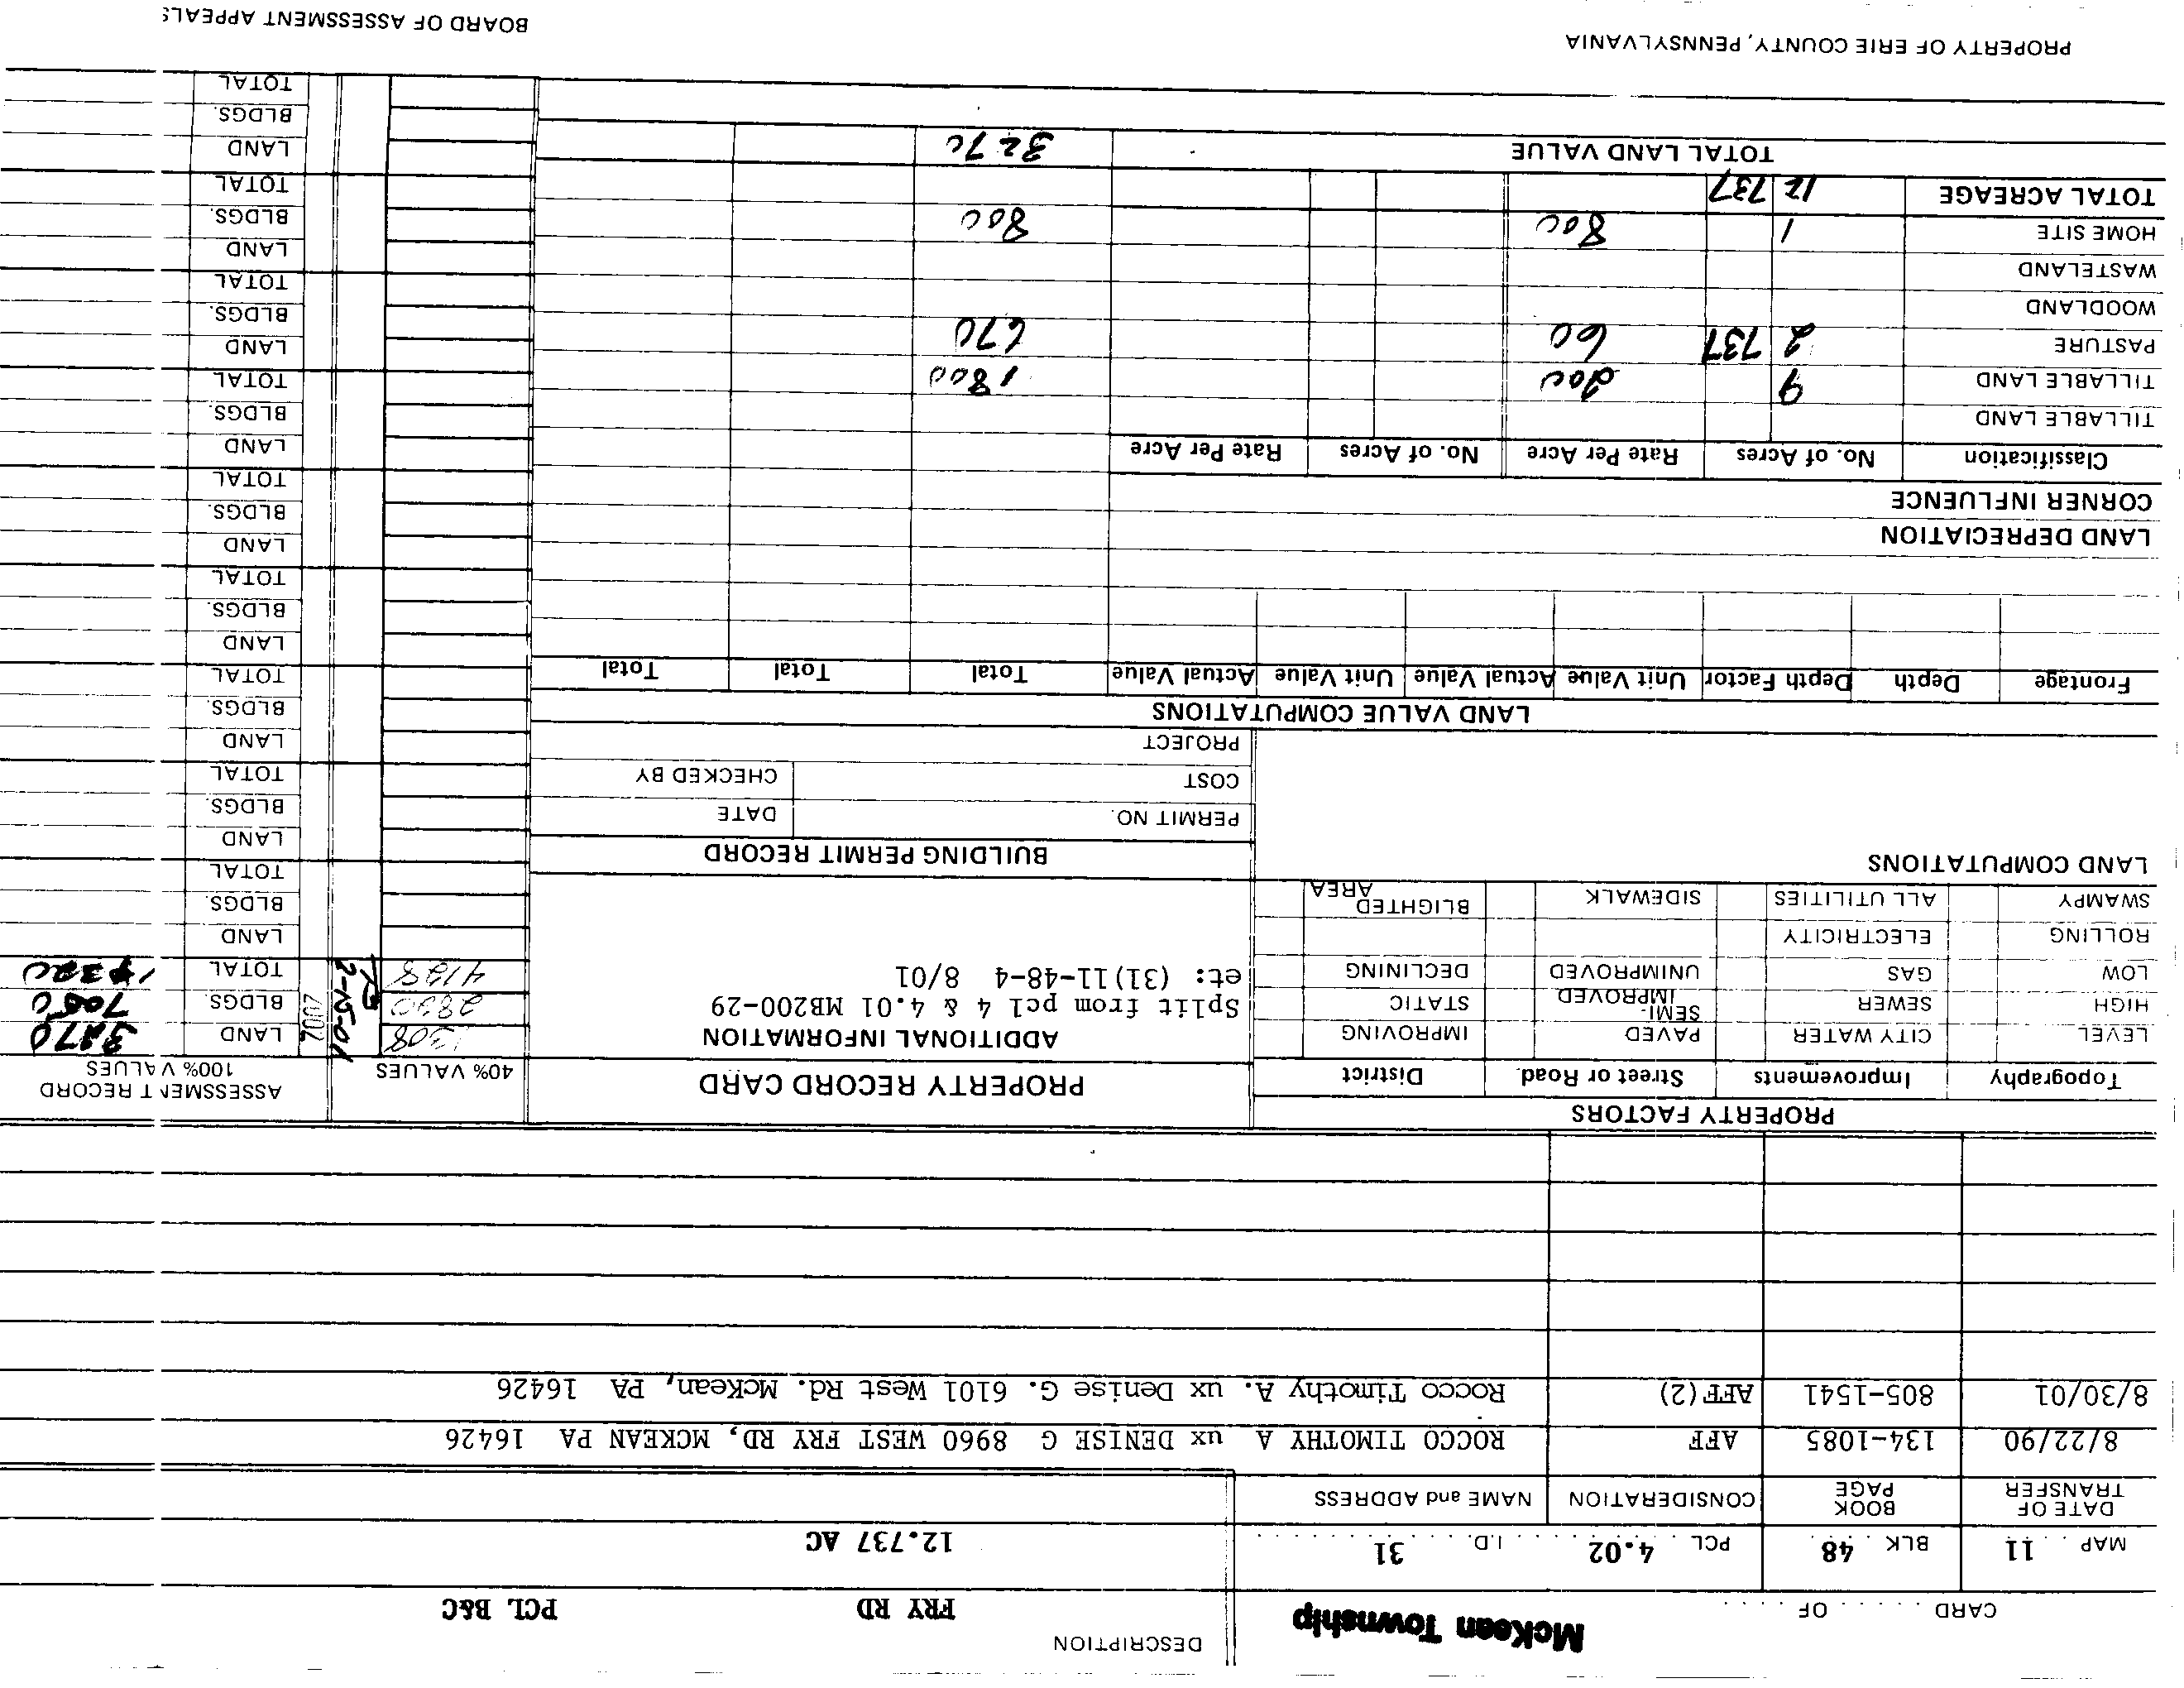 CARD ...... OF .....
McKean Township
DESCRIPTION
FRY RD PCL B&C
MAP 11 BLK 48 PCL 4.02 I.D. 31
12.737 AC
DATE OF TRANSFER BOOK PAGE CONSIDERATION NAME and ADDRESS
8/22/90 134-1085 AFF ROCCO TIMOTHY A ux DENISE G 8960 WEST FRY RD, MCKEAN PA 16426
8/30/01 805-1541 AFF(2) Rocco Timothy A. ux Denise G. 6101 West Rd. McKean, PA 16426
PROPERTY FACTORS
Topography Improvements Street or Road District
LEVEL CITY WATER PAVED IMPROVING
HIGH SEWER SEMI-IMPROVED STATIC
LOW GAS UNIMPROVED DECLINING
ROLLING ELECTRICITY
SWAMPY ALL UTILITIES SIDEWALK BLIGHTED AREA
LAND COMPUTATIONS
PROPERTY RECORD CARD
ADDITIONAL INFORMATION
Split from pcl 4 & 4.01 MB200-29
et: (31)11-48-4 8/01
BUILDING PERMIT RECORD
PERMIT NO. DATE
COST CHECKED BY
PROJECT
40% VALUES
1308
2820
4128
2002
ASSESSMENT RECORD
100% VALUES
LAND 3270
BLDGS. 7050
TOTAL
LAND
BLDGS.
TOTAL
LAND
BLDGS.
TOTAL
LAND
BLDGS.
TOTAL
LAND
BLDGS.
TOTAL
LAND
BLDGS.
TOTAL
LAND
BLDGS.
TOTAL
LAND
BLDGS.
TOTAL
LAND
BLDGS.
TOTAL
LAND
BLDGS.
TOTAL
LAND VALUE COMPUTATIONS
Frontage Depth Depth Factor Unit Value Actual Value Unit Value Actual Value Total Total Total
LAND DEPRECIATION
CORNER INFLUENCE
Classification No. of Acres Rate Per Acre No. of Acres Rate Per Acre
TILLABLE LAND
TILLABLE LAND 9 200 1800
PASTURE 2 737 60 670
WOODLAND
WASTELAND
HOME SITE 1 800 800
TOTAL ACREAGE 12 737
TOTAL LAND VALUE 3270
PROPERTY OF ERIE COUNTY, PENNSYLVANIA
BOARD OF ASSESSMENT APPEALS